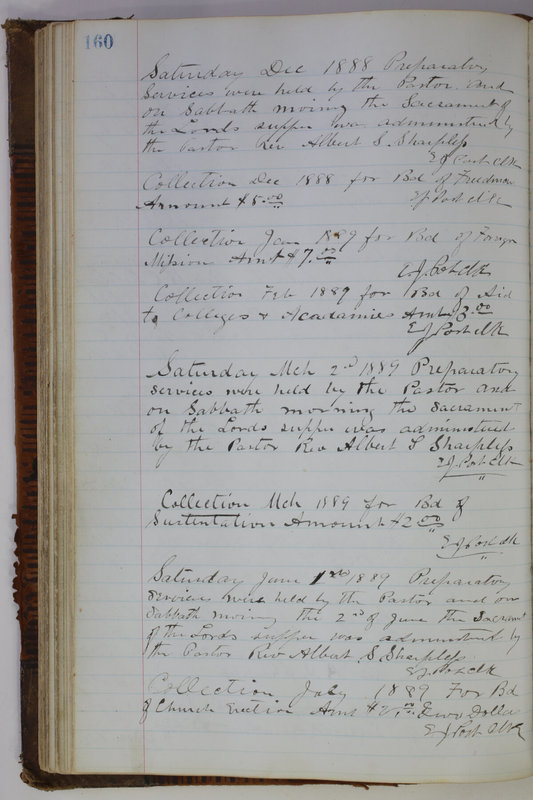 160
Saturday Dec 1888 Preparatory
Services were held by the Pastor and
on Sabbath moring the Sacrament of
the Lords supper was administered by
the Pastor Rev Albert S. Sharpless
E J Post Clk
Collection Dec 1888 for Bd of Freedmen
Amount $8.00
E J Post clk
Collection Jan 1889 for Bd of Foreign
Mission Amt $7.00
E. J. Post Clk
Collection Feb 1889 for Bd of Aid
to Colleges & Acadamies Amt 3.00
E J Post Clk
Saturday Mch 2nd 1889 Preparatory
services were held by the Pastor and
on Sabbath morning the Sacrament
of the Lords supper was administerd
by the Pastor Rev Albert S Sharpless
E J. Post Clk
Collection Mch 1889 for Bd of
Sustentation Amount $2.00
E J Post clk
Saturday June 1st 1889 Preparatory
services were held by the Pastor and on
Sabbath moring the 2nd of June the Sacrament
of the Lords supper was administerd by
the Pastor Rev Albert S. Sharpless
E J Post clk
Collection July 1889 For Bd
of Church Erection Amt $2.00 Two Dollars
E J Post Clk